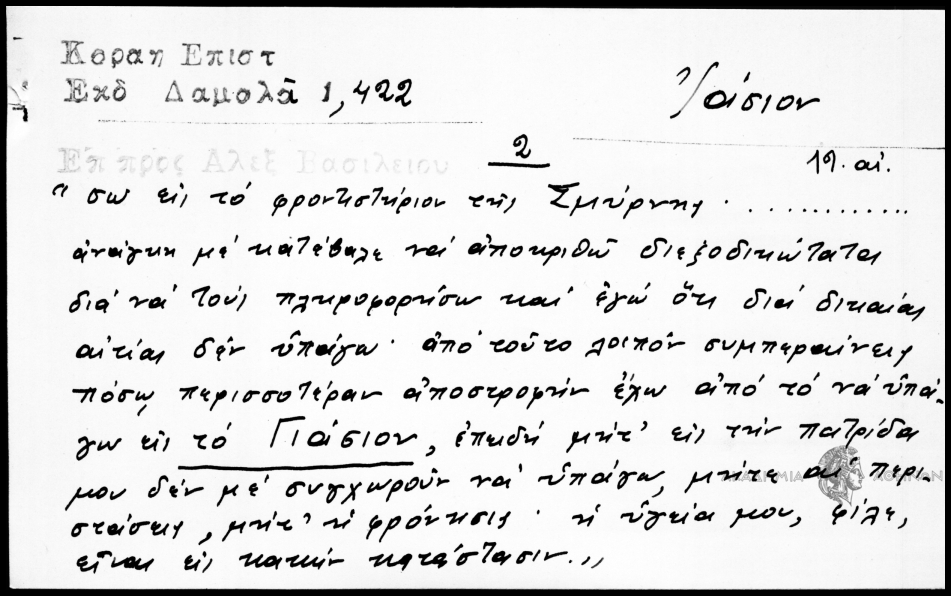 Κοραη Επιστ
Εκδ Δαμαλᾶ 1,422
Γιάσιον
Επ προς Αλεξ Βασιλειου
2
19. αἰ.
"σω εἰς τό φροντιστήριον τῆς Σμύρνης . . . . . . . . . . . .
ἀνάγκη μέ κατέβαλε νά ἀποκριθῶ διεξοδικώτατα
διά νά τούς πληροφορήσω καί ἐγώ ὅτι διά δικαίας
αἰτίας δέν ὑπάγω· ἀπό τοῦτο λοιπόν συμπεραίνεις
πόσω περισσοτέραν ἀποστροφήν ἔχω ἀπό τό νά ὑπά-
γω εἰς τό Γιάσιον, ἐπειδή μήτ' εἰς τήν πατρίδα
μου δέν μέ συγχωροῦν νά ὑπάγω, μήτε αἱ περι-
στάσεις, μήτ' ἡ φρόνησις· ἡ ὑγεία μου, φίλε,
εἶναι εἰς κακήν κατάστασιν."
ΑΚΑΔΗΜΙΑ ΑΘΗΝΩΝ